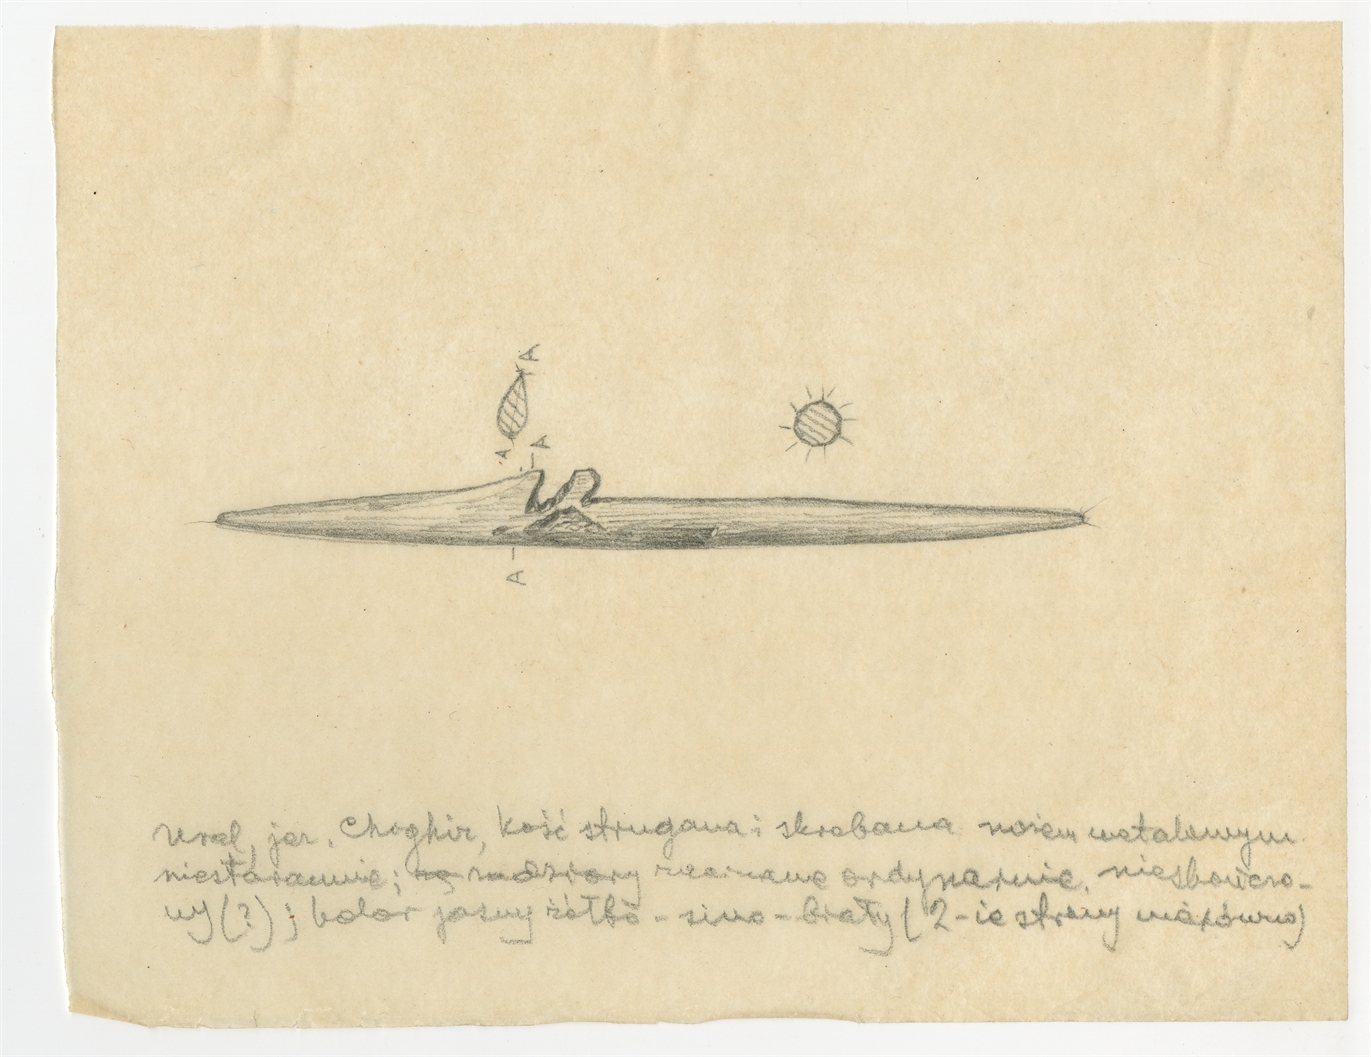 A
A
A
A
Ural, jez. Choghir, kość strugana i skrobana nożem metalowym
niestarannie; zacinane ordynarnie, nieskończo-
ny (?); kolor jasny żółto-sino-biały (2-ie strony nierówno)